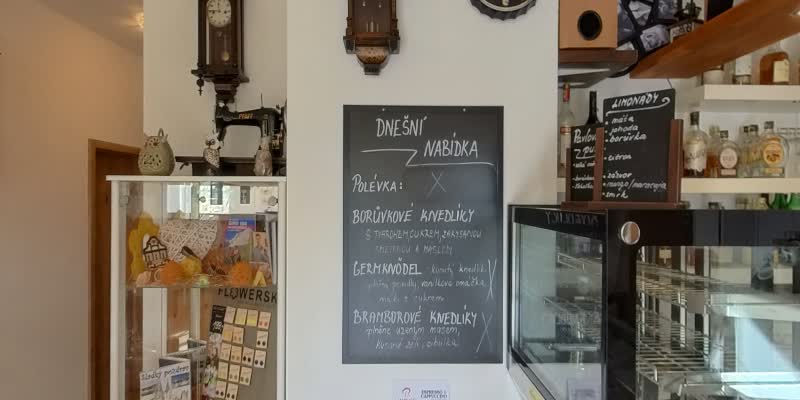 DNEŠNÍ
NABÍDKA
POLÉVKA: X
BORŮVKOVÉ KNEDLÍKY
S TVAROHEM, CUKREM, ZAKYSANOU
SMETANOU A MÁSLEM
GERMKNÖDEL - kynutý knedlík
plněný povidly, vanilková omáčka,
mák s cukrem
BRAMBOROVÉ KNEDLÍKY
plněné uzeným masem,
kysané zelí, cibulka
LIMONÁDY
- máta
- jahoda
- borůvka
- citron
- zázvor
- mango/maracuja
- smrk
Pavlova
FLOWERSK
Sladký podzim
ESPRESSO &
CAPPUCCINO